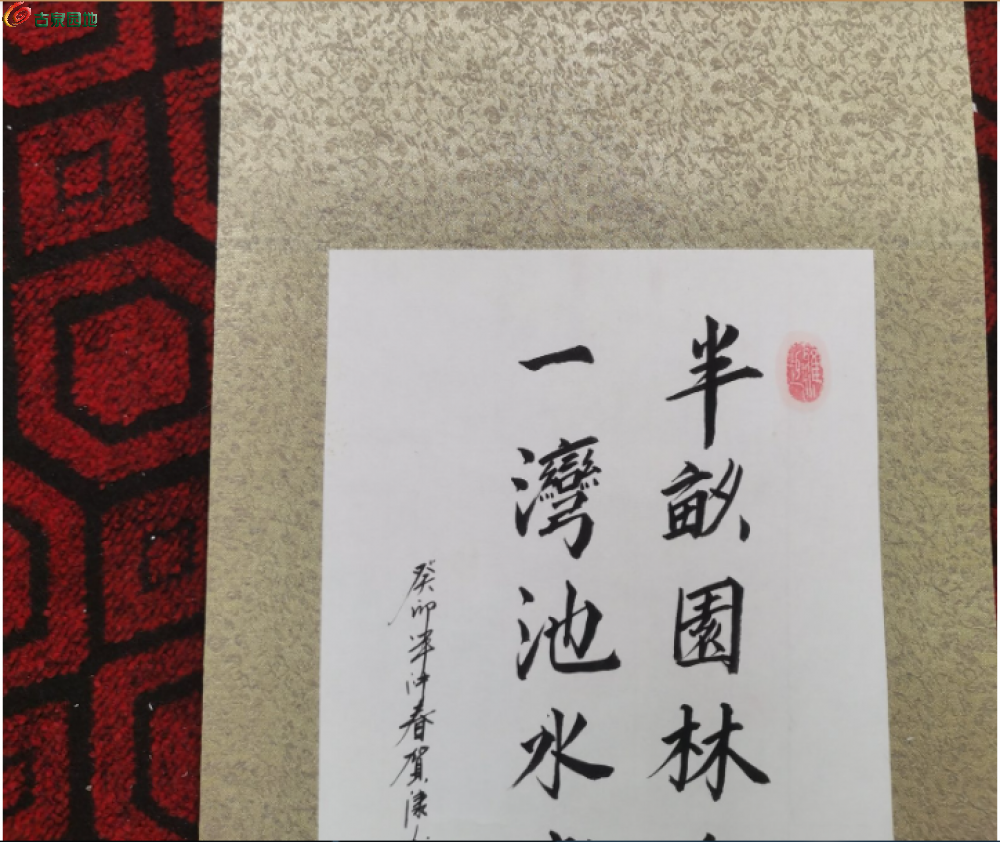 吉家园地
半畝園林
一灣池水
癸卯年仲春賀